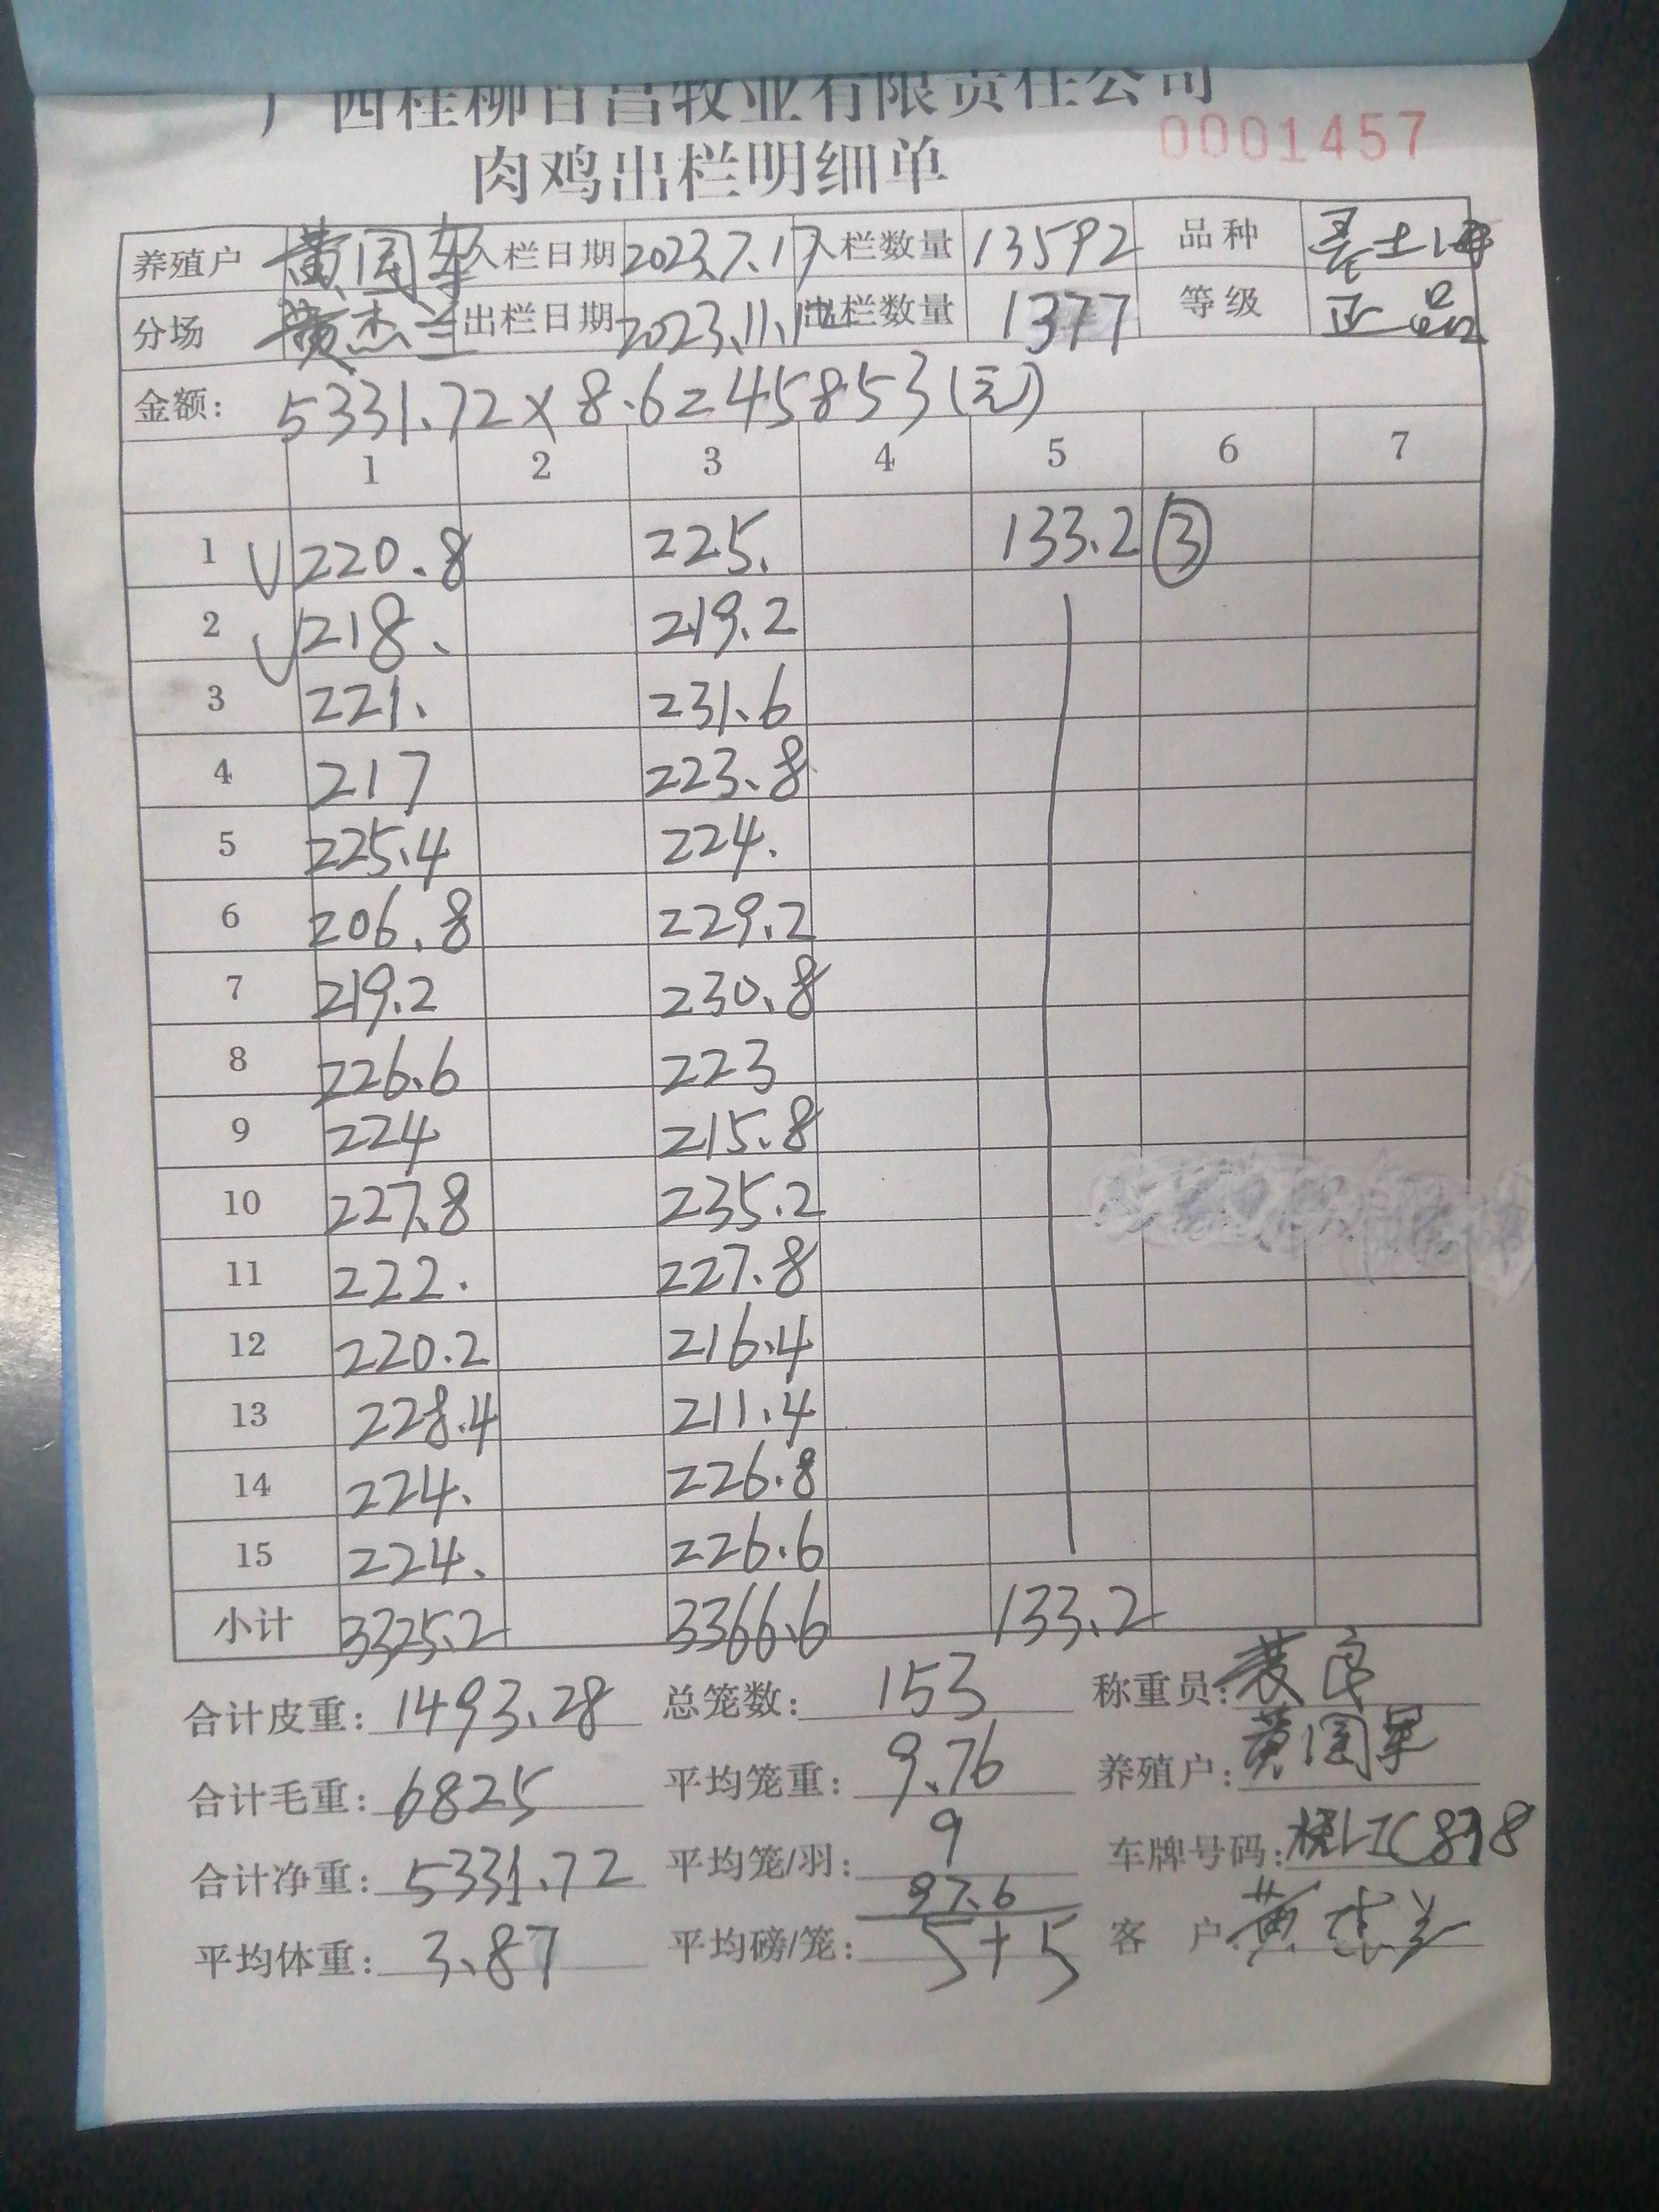 广西桂柳百昌牧业有限责任公司
肉鸡出栏明细单
0001457
养殖户 黄国军 入栏日期 2023.7.17 入栏数量 13592 品种
分场 黄杰兰 出栏日期 2023.11.12 出栏数量 1377 等级 正品
金额: 5331.72×8.6=45853(元)
1 2 3 4 5 6 7
1 √ 220.8 225. 133.2 ③
2 √ 218. 219.2
3 221. 231.6
4 217 223.8
5 225.4 224.
6 206.8 229.2
7 219.2 230.8
8 226.6 223
9 224 215.8
10 227.8 235.2
11 222. 227.8
12 220.2 216.4
13 228.4 211.4
14 224. 226.8
15 224. 226.6
小计 3325.2 3366.6 133.2
合计皮重: 1493.28 总笼数: 153 称重员:
合计毛重: 6825 平均笼重: 9.76 养殖户:
合计净重: 5331.72 平均笼/羽: 9 车牌号码:
97.6
平均体重: 3.87 平均磅/笼: 5+5 客户: 黄杰兰